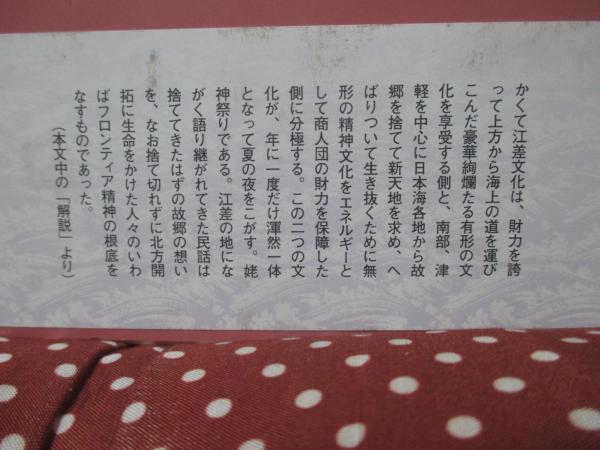 かくて江差文化は、財力を誇
って上方から海上の道を運び
こんだ豪華絢爛たる有形の文
化を享受する側と、南部、津
軽を中心に日本海各地から故
郷を捨てて新天地を求め、へ
ばりついて生き抜くために無
形の精神文化をエネルギーと
して商人団の財力を保障した
側に分極する。この二つの文
化が、年に一度だけ渾然一体
となって夏の夜をこがす。姥
神祭りである。江差の地にな
がく語り継がれてきた民話は
捨ててきたはずの故郷の想い
を、なお捨て切れずに北方開
拓に生命をかけた人々のいわ
ばフロンティア精神の根底を
なすものであった。
（本文中の「解説」より）